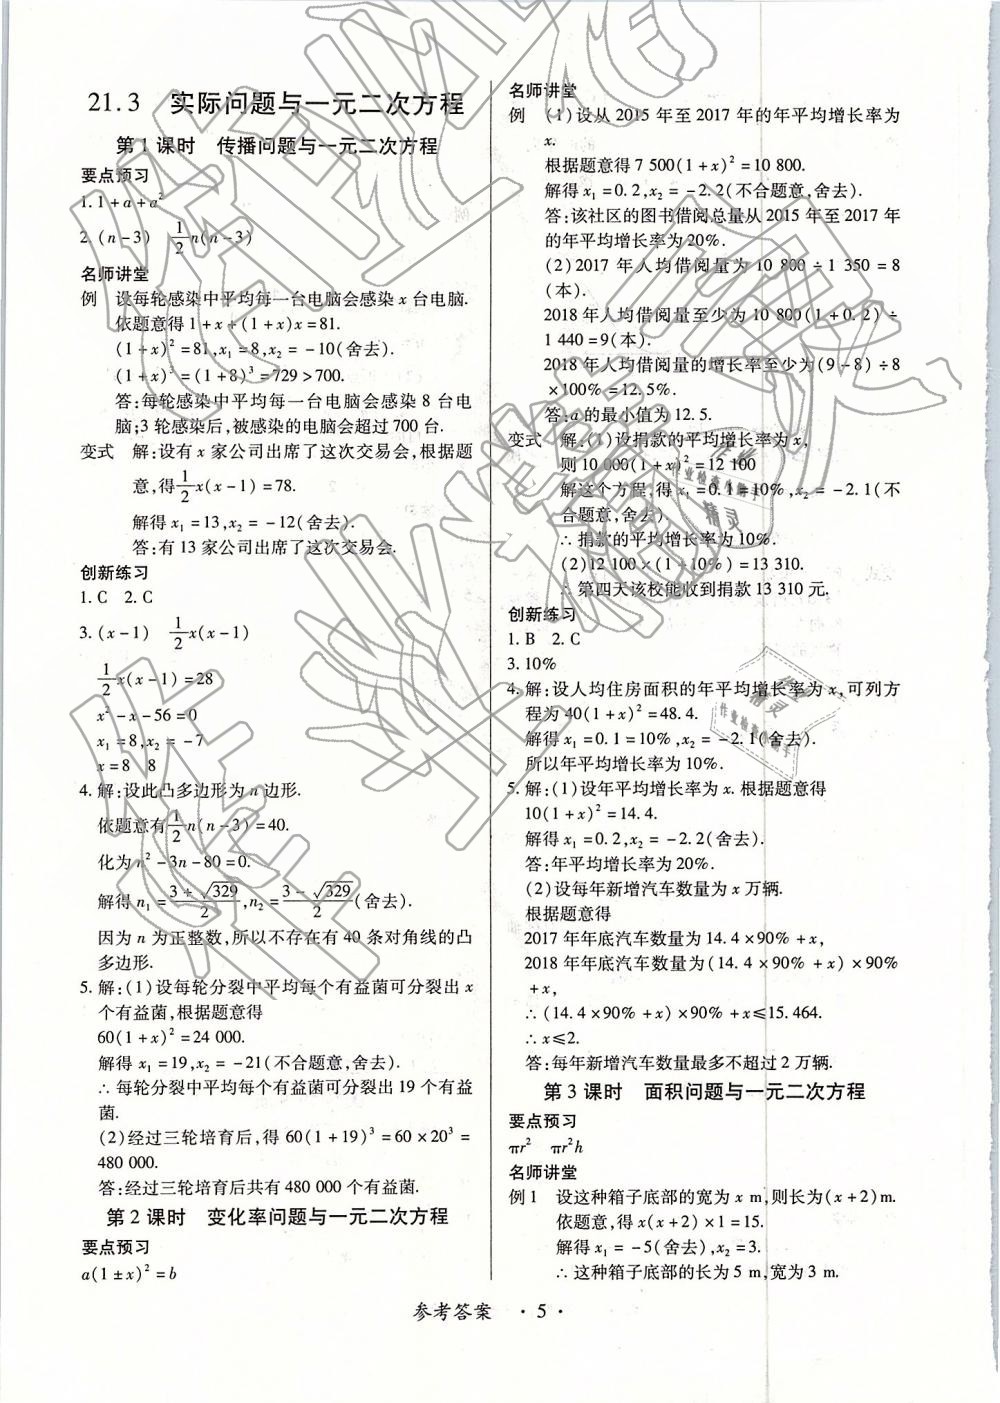 21.3　实际问题与一元二次方程
第1课时　传播问题与一元二次方程
要点预习
1. 1+a+a²
2. (n-3)　1/2n(n-3)
名师讲堂
例　设每轮感染中平均每一台电脑会感染 x 台电脑.
依题意得 1+x+(1+x)x=81.
(1+x)²=81,x₁=8,x₂=-10(舍去).
(1+x)³=(1+8)³=729>700.
答:每轮感染中平均每一台电脑会感染 8 台电
脑;3 轮感染后,被感染的电脑会超过 700 台.
变式　解:设有 x 家公司出席了这次交易会,根据题
意,得1/2x(x-1)=78.
解得 x₁=13,x₂=-12(舍去).
答:有 13 家公司出席了这次交易会.
创新练习
1. C　2. C
3. (x-1)　1/2x(x-1)
1/2x(x-1)=28
x²-x-56=0
x₁=8,x₂=-7
x=8　8
4. 解:设此凸多边形为 n 边形.
依题意有1/2n(n-3)=40.
化为 n²-3n-80=0.
解得 n₁=(3+√329)/2,n₂=(3-√329)/2(舍去).
因为 n 为正整数,所以不存在有 40 条对角线的凸
多边形.
5. 解:(1)设每轮分裂中平均每个有益菌可分裂出 x
个有益菌,根据题意得
60(1+x)²=24 000.
解得 x₁=19,x₂=-21(不合题意,舍去).
∴每轮分裂中平均每个有益菌可分裂出 19 个有益
菌.
(2)经过三轮培育后,得 60(1+19)³=60×20³=
480 000.
答:经过三轮培育后共有 480 000 个有益菌.
第2课时　变化率问题与一元二次方程
要点预习
a(1±x)²=b
名师讲堂
例　(1)设从 2015 年至 2017 年的年平均增长率为
x.
根据题意得 7 500(1+x)²=10 800.
解得 x₁=0.2,x₂=-2.2(不合题意,舍去).
答:该社区的图书借阅总量从 2015 年至 2017 年
的年平均增长率为 20%.
(2)2017 年人均借阅量为 10 800÷1 350=8
(本).
2018 年人均借阅量至少为 10 800(1+0.2)÷
1 440=9(本).
2018 年人均借阅量的增长率至少为(9-8)÷8
×100%=12.5%.
答:a 的最小值为 12.5.
变式　解:(1)设捐款的平均增长率为 x,
则 10 000(1+x)²=12 100
解这个方程,得 x₁=0.1=10%,x₂=-2.1(不
合题意,舍去).
∴捐款的平均增长率为 10%.
(2)12 100×(1+10%)=13 310.
∴第四天该校能收到捐款 13 310 元.
创新练习
1. B　2. C
3. 10%
4. 解:设人均住房面积的年平均增长率为 x,可列方
程为 40(1+x)²=48.4.
解得 x₁=0.1=10%,x₂=-2.1(舍去).
所以年平均增长率为 10%.
5. 解:(1)设年平均增长率为 x. 根据题意得
10(1+x)²=14.4.
解得 x₁=0.2,x₂=-2.2(舍去).
答:年平均增长率为 20%.
(2)设每年新增汽车数量为 x 万辆.
根据题意得
2017 年年底汽车数量为 14.4×90%+x,
2018 年年底汽车数量为(14.4×90%+x)×90%
+x,
∴(14.4×90%+x)×90%+x≤15.464.
∴x≤2.
答:每年新增汽车数量最多不超过 2 万辆.
第3课时　面积问题与一元二次方程
要点预习
πr²　πr²h
名师讲堂
例1　设这种箱子底部的宽为 x m,则长为(x+2)m.
依题意,得 x(x+2)×1=15.
解得 x₁=-5(舍去),x₂=3.
∴这种箱子底部的长为 5 m,宽为 3 m.
参考答案　·5·